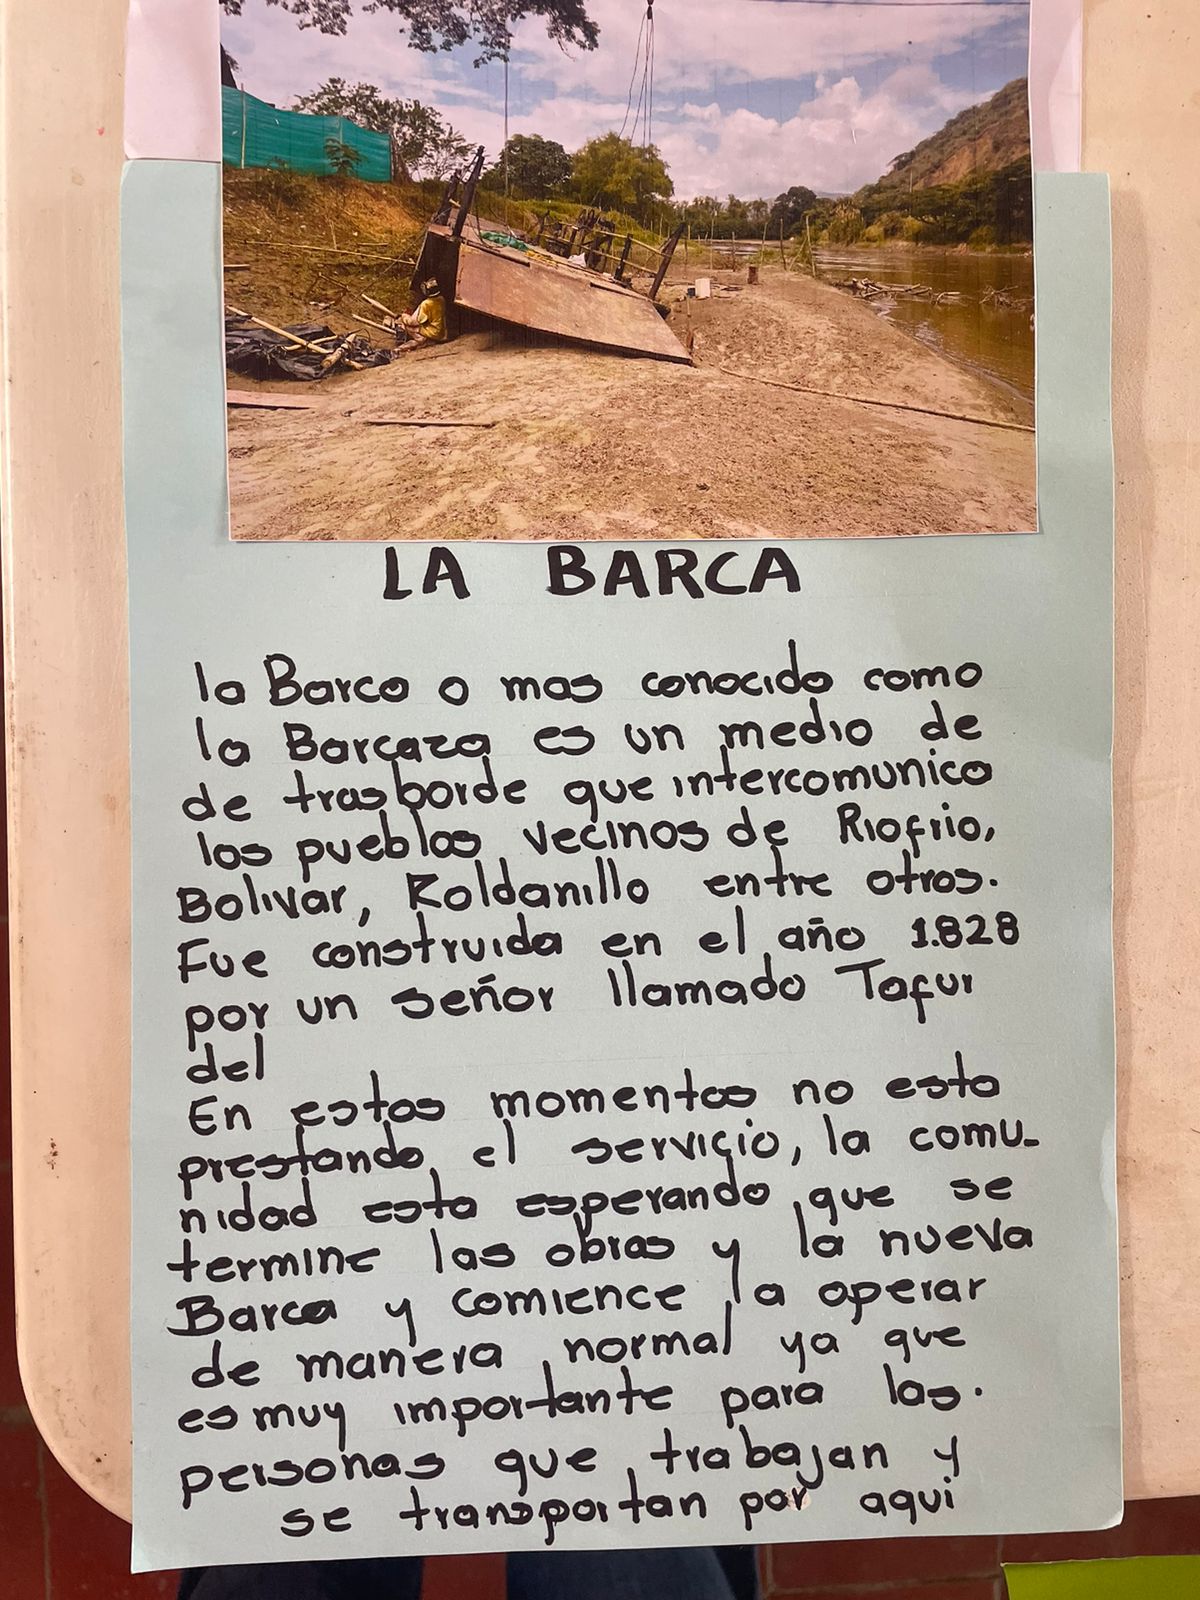 LA BARCA
la Barca o mas conocido como
la Barcaza es un medio de
de trasborde que intercomunica
los pueblos vecinos de Riofrio,
Bolivar, Roldanillo entre otros.
Fue construida en el año 1.828
por un señor llamado Tafur
del
En estos momentos no esta
prestando el servicio, la comu-
nidad esta esperando que se
termine las obras y la nueva
Barca y comience la operar
de manera normal ya que
es muy importante para las.
personas que trabajan y
se transportan por aqui